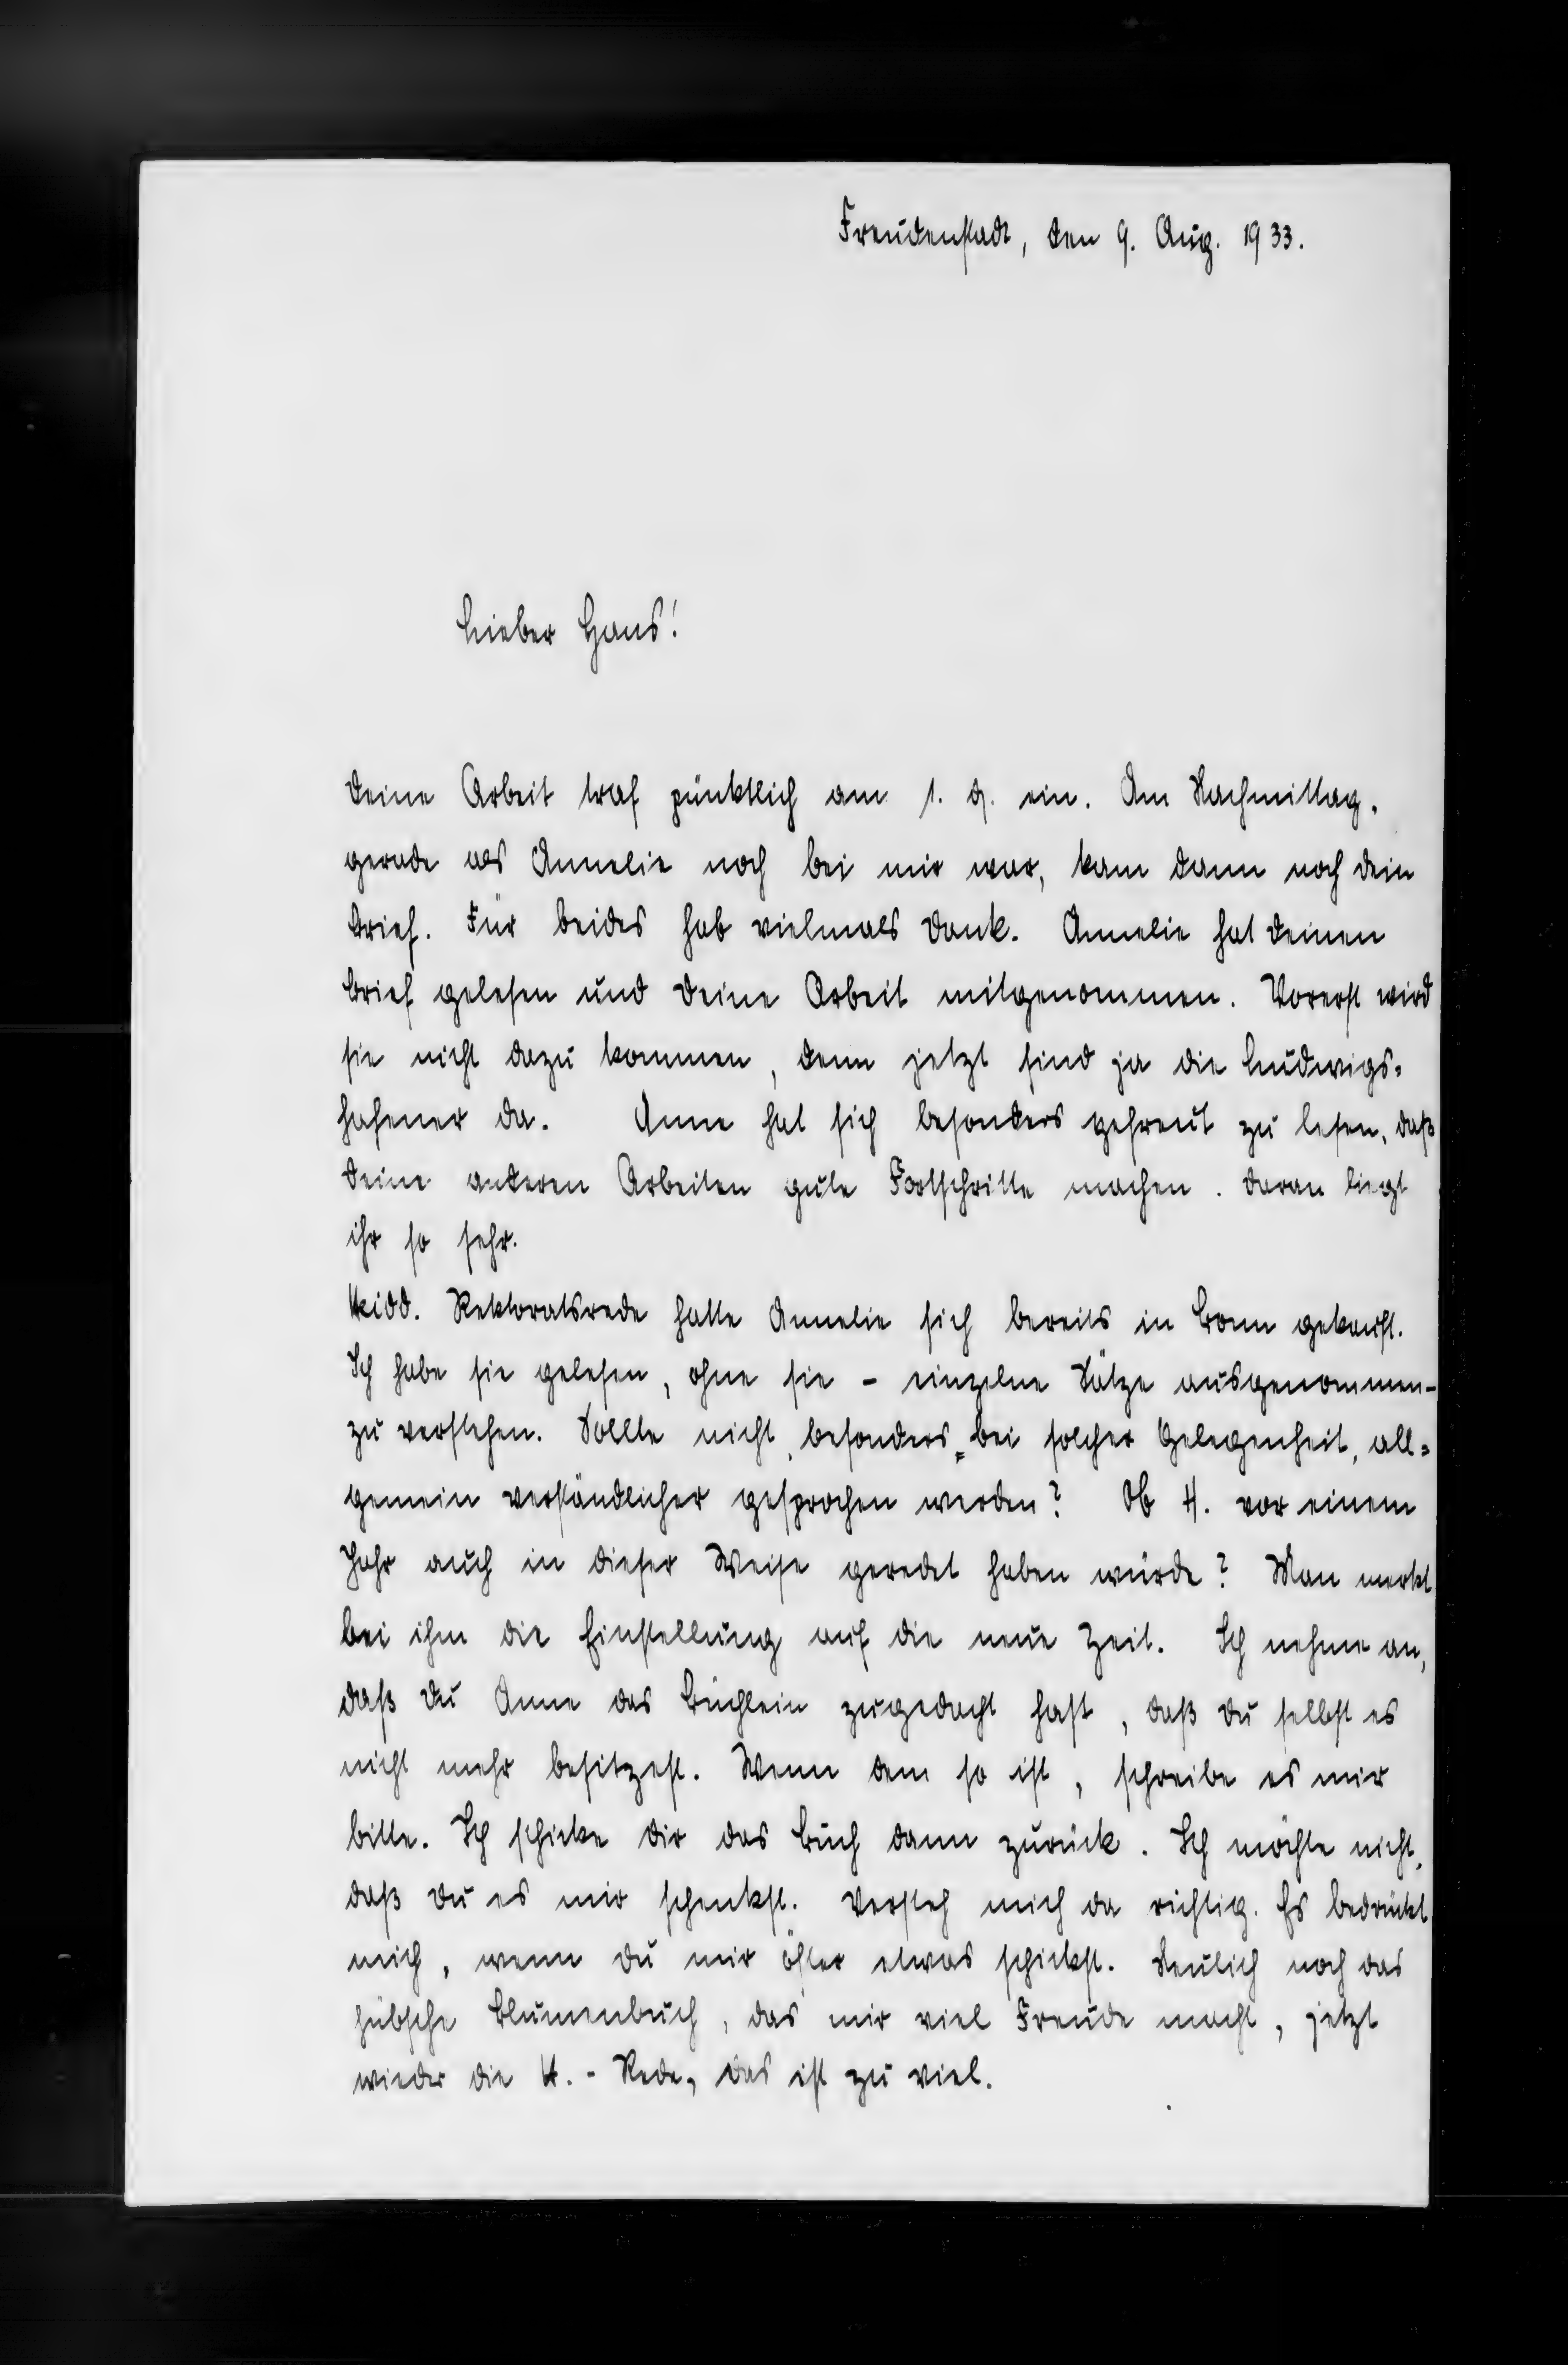 Freudenstadt, den 9. Aug. 1933.
Lieber Hans!
Deine Arbeit traf pünktlich am 1. 8. ein. Am Nachmittag,
gerade als Annelie noch bei mir war, kam dann noch Dein
Brief. Für beides hab vielmals Dank. Annelie hat Deinen
Brief gelesen und Deine Arbeit mitgenommen. Vorerst wird
sie nicht dazu kommen, denn jetzt sind ja die Ludwigs=
hafener da. Anne hat sich besonders gefreut zu lesen, daß
Deine anderen Arbeiten gute Fortschritte machen. Daran liegt
ihr so sehr.
Heidd. Rektoratsrede hatte Annelie sich bereits in Bonn gekauft.
Ich habe sie gelesen, ohne sie - einzelne Sätze ausgenommen -
zu verstehen. Sollte nicht, besonders bei solcher Gelegenheit, all=
gemein verständlicher gesprochen werden? Ob H. vor einem
Jahr auch in dieser Weise geredet haben würde? Man merkt
bei ihm die Einstellung auf die neue Zeit. Ich nehme an,
daß Du Anne das Büchlein zugedacht hast, daß Du selbst es
nicht mehr besitzest. Wenn dem so ist, schreibe es mir
bitte. Ich schicke Dir das Buch dann zurück. Ich möchte nicht,
daß Du es mir schenkst. Versteh mich da richtig. Es bedrückt
mich, wenn Du mir öfter etwas schickst. Neulich noch das
hübsche Blumenbuch, das mir viel Freude macht, jetzt
wieder die H.-Rede, das ist zu viel.